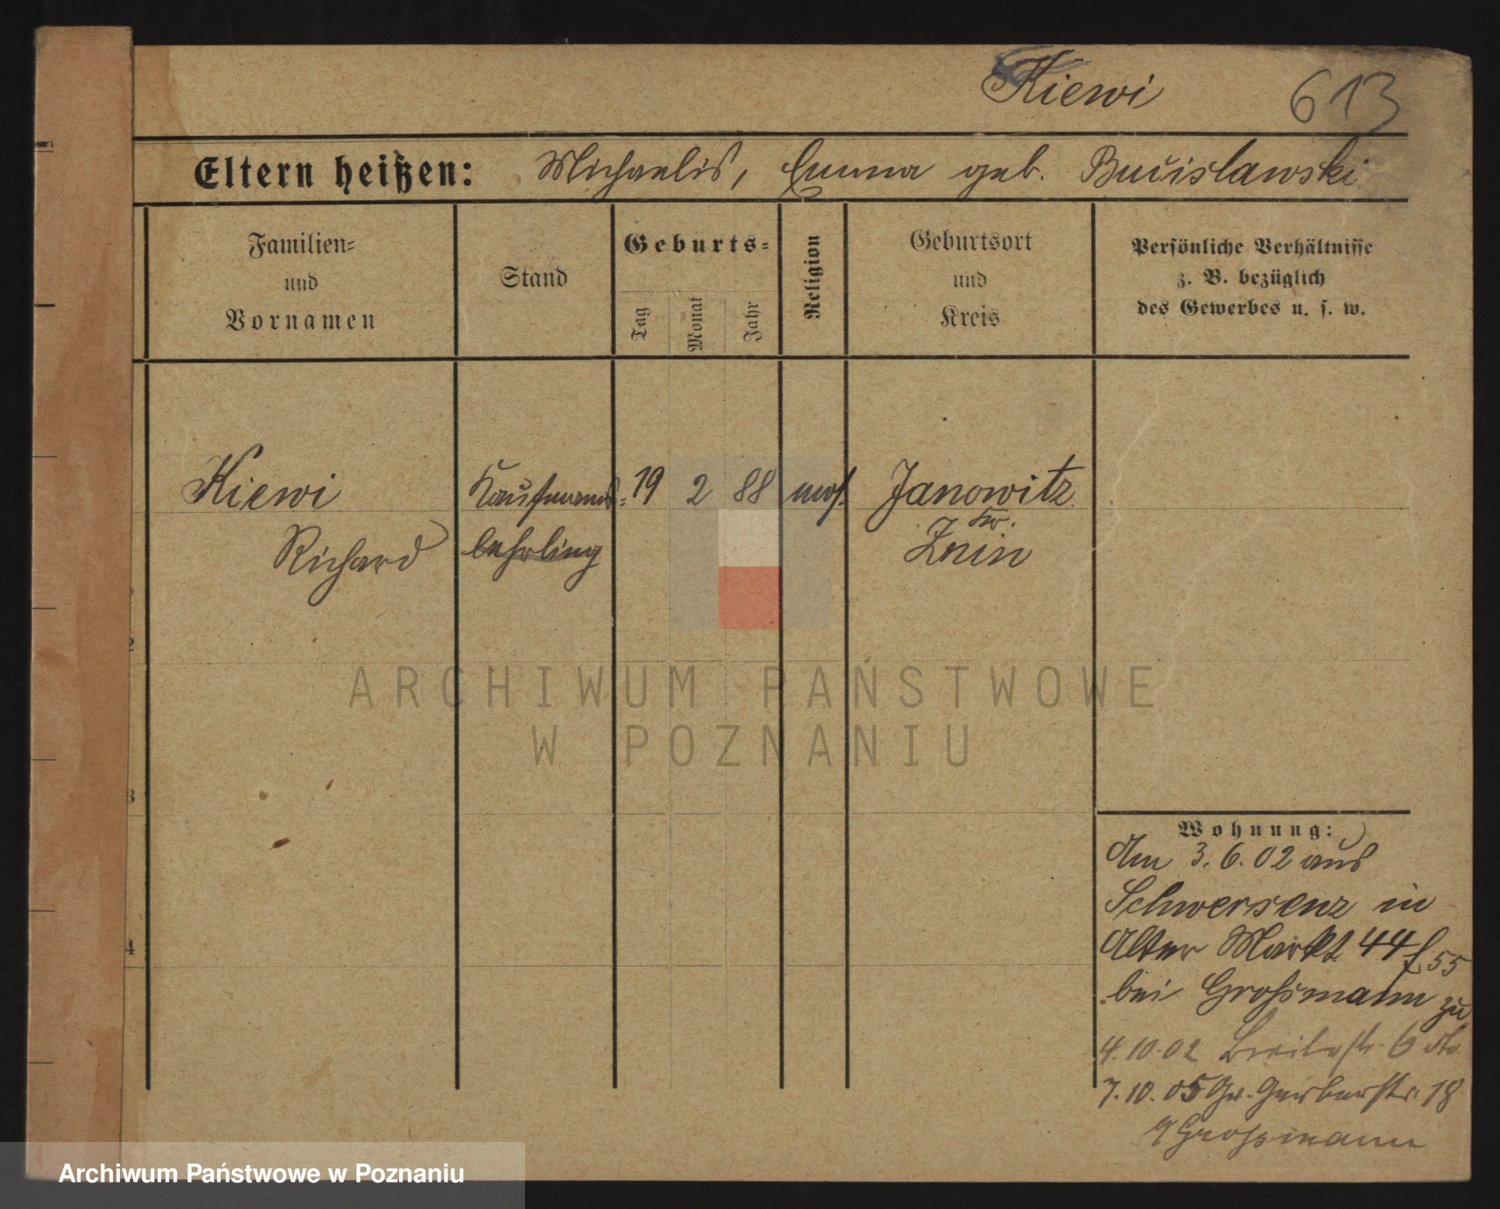 Kiewi 613
Eltern heißen: Michaelis, Emma geb. Bucislawski
Familien-
und
Vornamen
Stand
Geburts-
Tag
Monat
Jahr
Religion
Geburtsort
und
Kreis
Persönliche Verhältnisse
z. B. bezüglich
des Gewerbes u. s. w.
Kiewi Kaufmanns- 19 2 88 mos. Janowitz
Kr.
Richard lehrling Znin
2
3
4
ARCHIWUM PAŃSTWOWE
W POZNANIU
Wohnung:
Am 3.6.02 aus
Schwersenz in
Alter Markt 44 55
bei Großmann zu
4.10.02 Breitestr. 6
7.10.05 Gr. Gerberstr. 18
Großmann
Archiwum Państwowe w Poznaniu